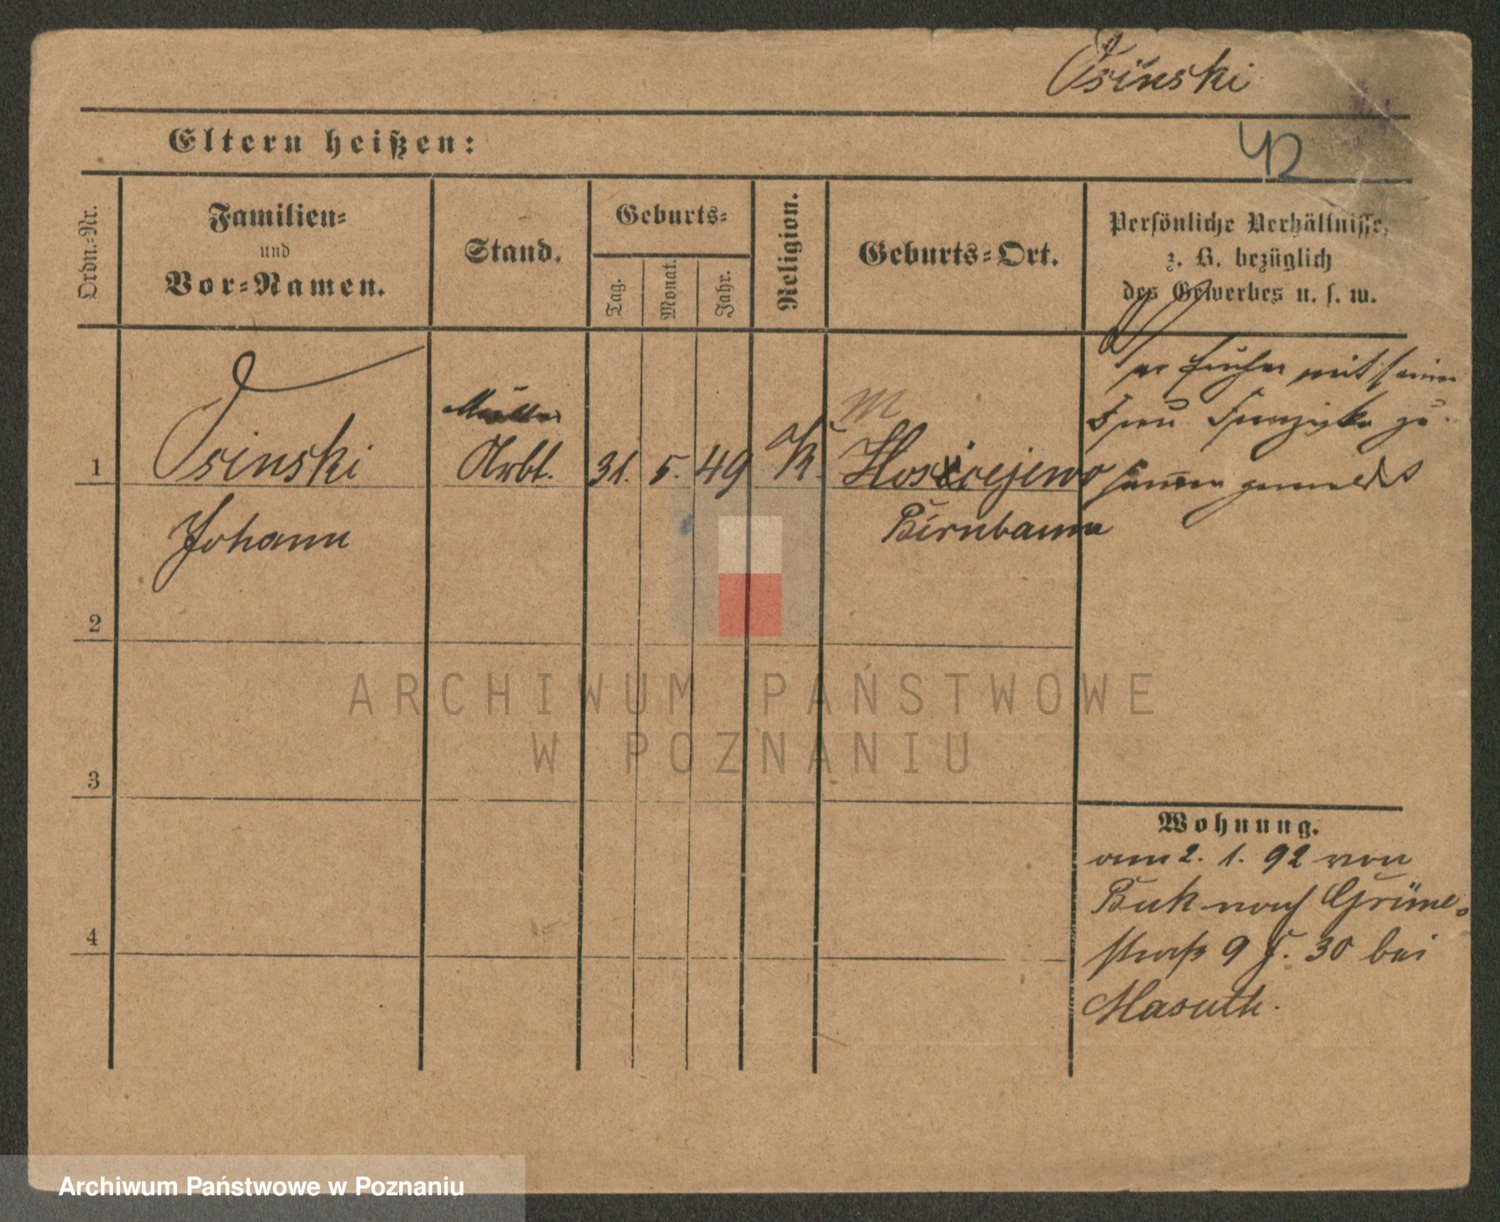 Osinski
Eltern heißen:
42
Ordn.-Nr.
Familien-
und
Vor-Namen.
Stand.
Geburts-
Tag.
Monat.
Jahr.
Religion.
Geburts-Ort.
Persönliche Verhältnisse,
z. B. bezüglich
des Gewerbes u. s. w.
1
Osinski
Johann
Arbt.
31.
5.
49
K.
Birnbaum
war früher mit seiner
Frau Franziska zu-
sammen gemeldet
2
3
4
ARCHIWUM PAŃSTWOWE
W POZNANIU
Wohnung.
am 2. 1. 92 von
Buk nach Grüne-
straße 9 30 bei
Masuth.
Archiwum Państwowe w Poznaniu